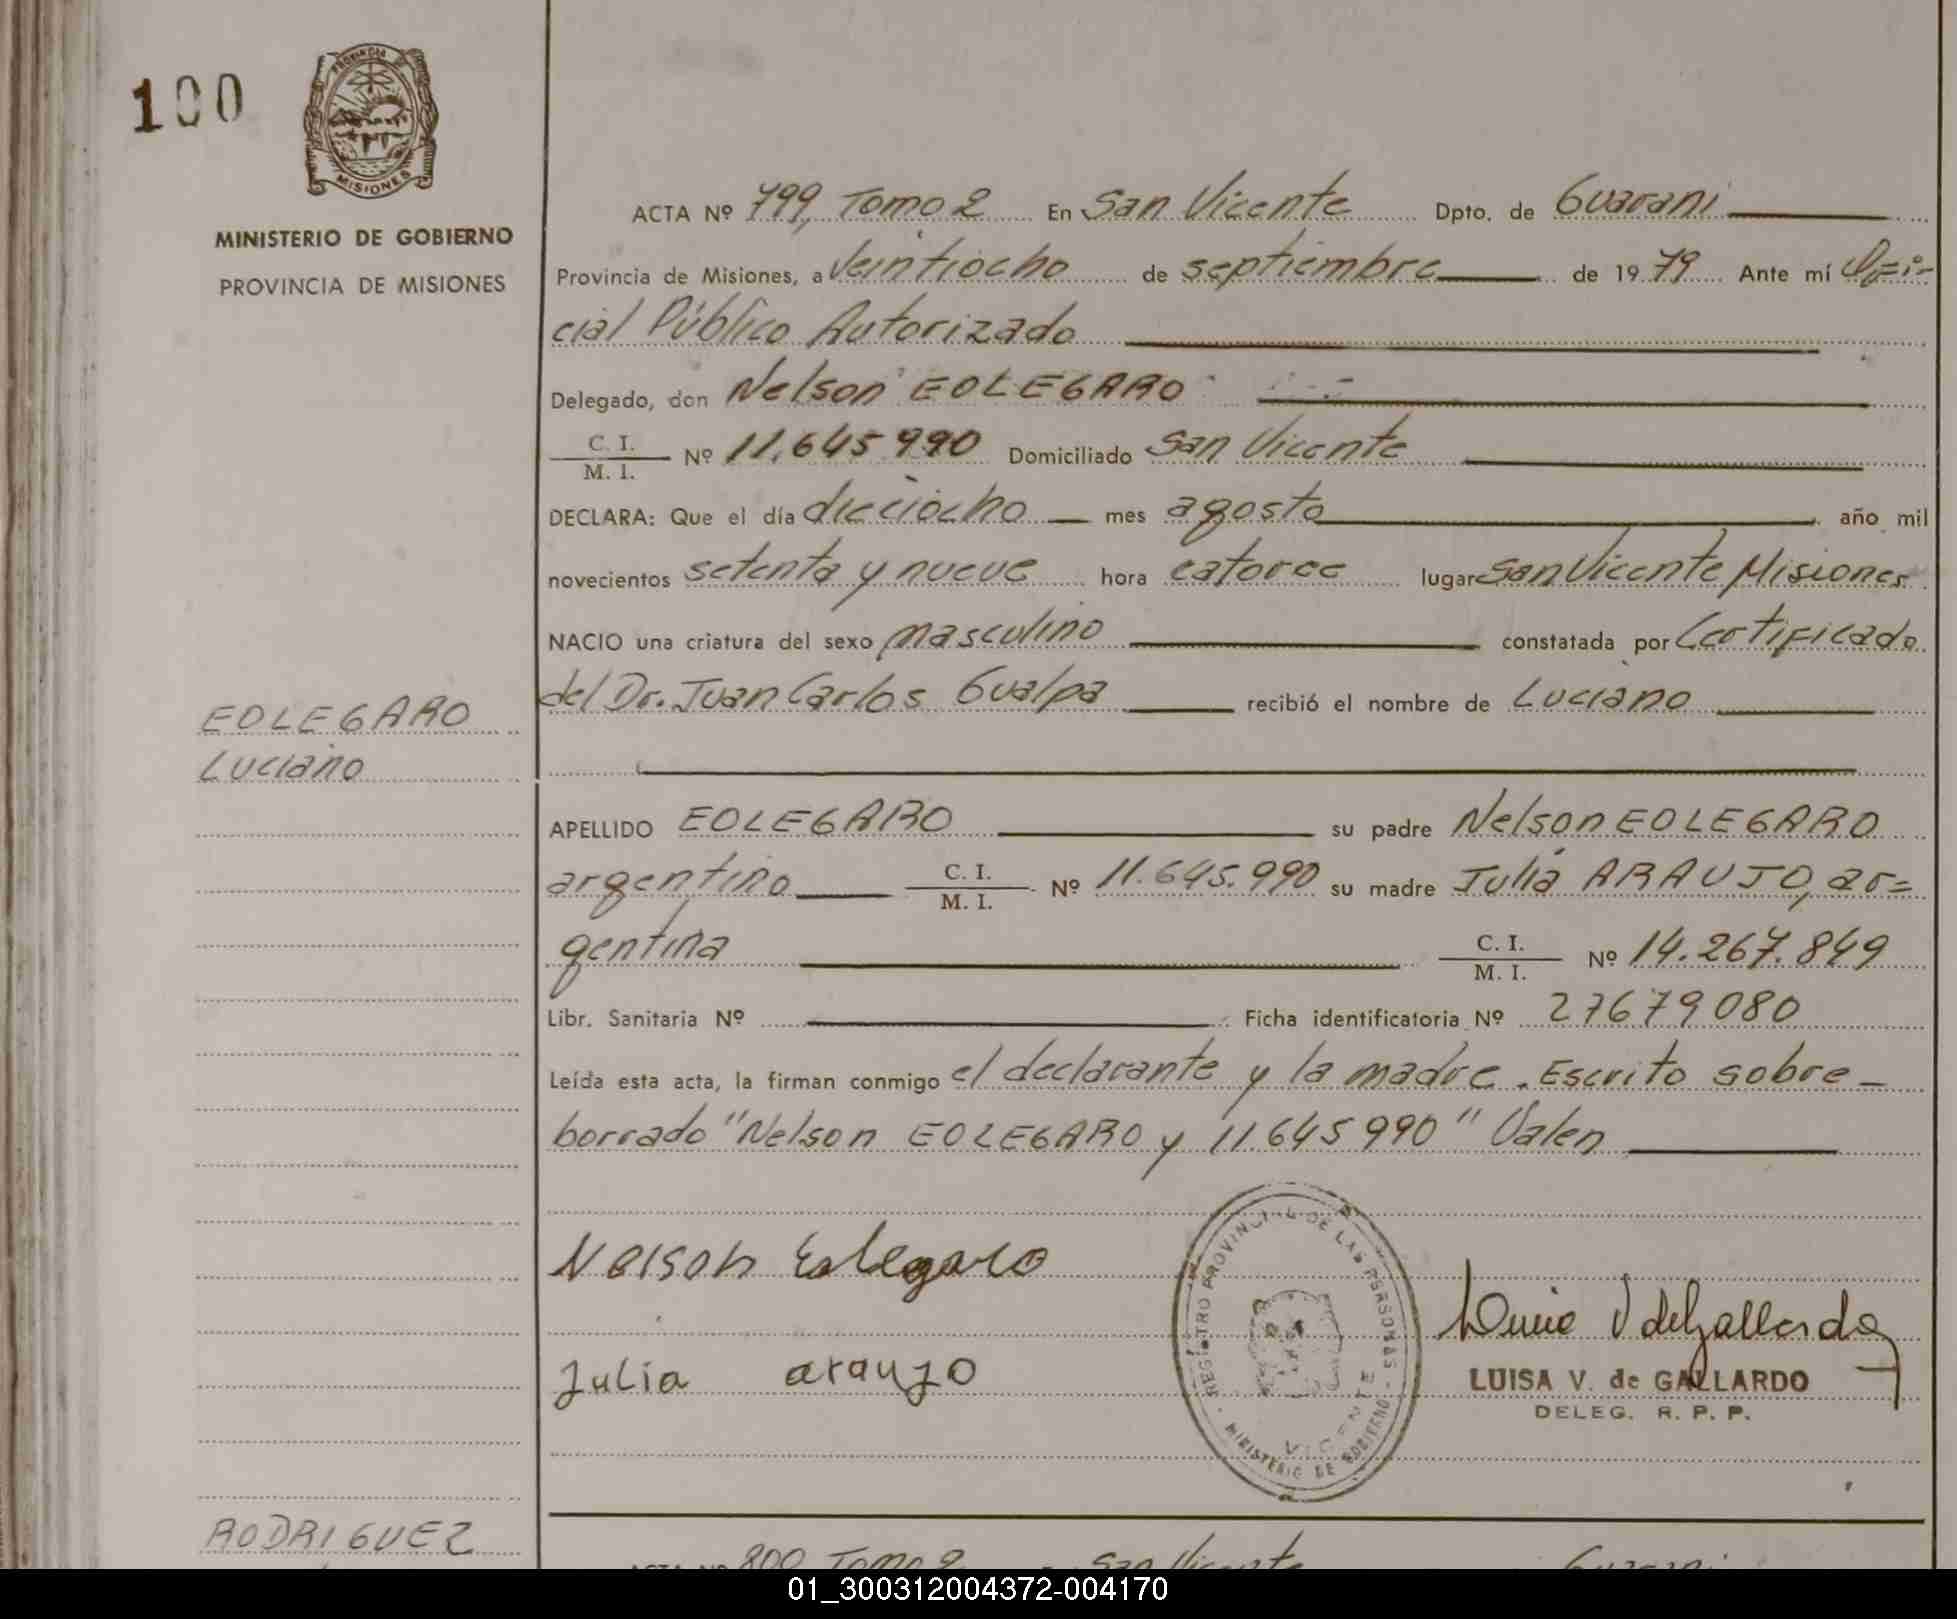 100
PROVINCIA DE
MISIONES
MINISTERIO DE GOBIERNO
PROVINCIA DE MISIONES
ACTA Nº 799, Tomo 2 En San Vicente Dpto. de Guarani
Provincia de Misiones, a Veintiocho de septiembre de 1979 Ante mí Ofi-
cial Público Autorizado
Delegado, don Nelson EOLEGARO
C. I.
M. I. Nº 11.645.990 Domiciliado San Vicente
DECLARA: Que el día dieciocho mes agosto año mil
novecientos setenta y nueve hora catorce lugar San Vicente Misiones
NACIO una criatura del sexo masculino constatada por Certificado
del Dr. Juan Carlos Gualpa recibió el nombre de Luciano
EOLEGARO
Luciano
APELLIDO EOLEGARO su padre Nelson EOLEGARO
argentino C. I.
M. I. Nº 11.645.990 su madre Julia ARAUJO, ar=
gentina C. I.
M. I. Nº 14.267.849
Libr. Sanitaria Nº Ficha identificatoria Nº 27679080
Leída esta acta, la firman conmigo el declarante y la madre. Escrito sobre-
borrado "Nelson EOLEGARO y 11.645990" Valen
Nelson Eolegaro
Julia araujo
REGISTRO PROVINCIAL DE LAS PERSONAS
MINISTERIO DE GOBIERNO
VICENTE
V de Gallardo
LUISA V. de GALLARDO
DELEG. R. P. P.
RODRIGUEZ
ACTA Nº 800 Tomo 2 San Vicente Guarani
01_300312004372-004170